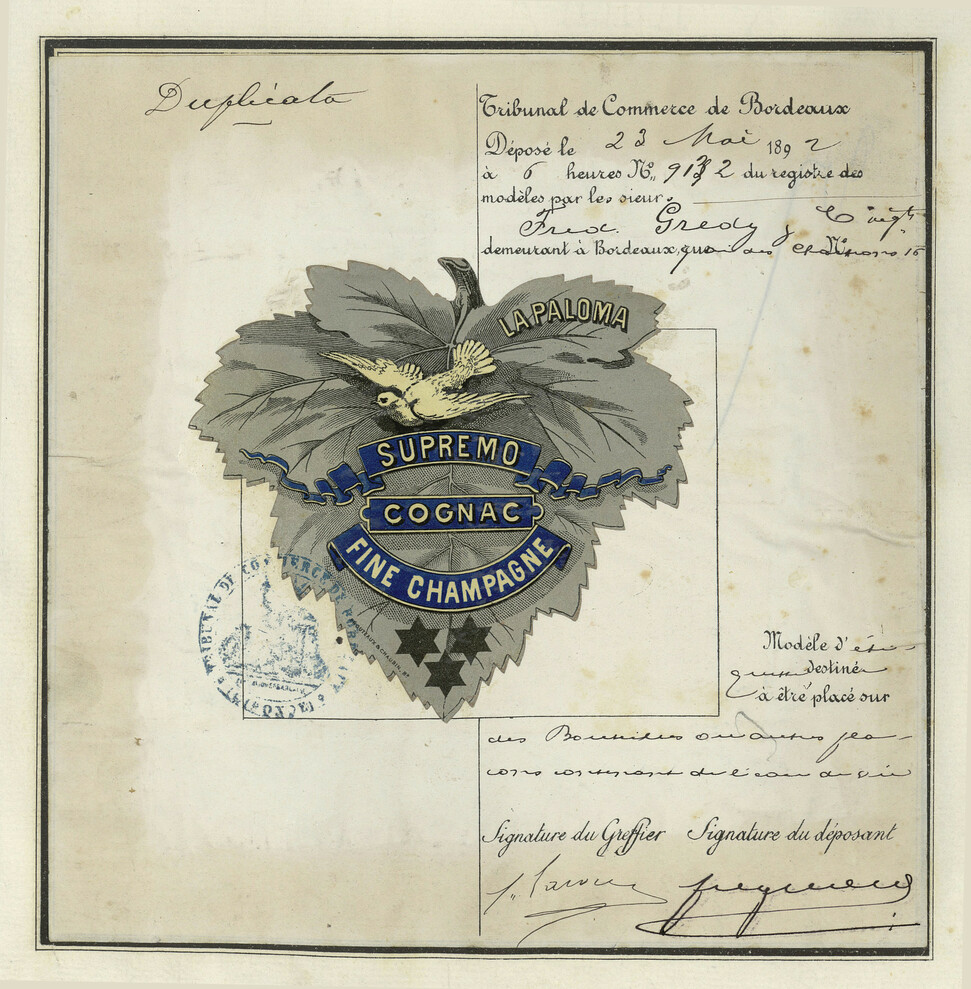 Duplicata
Tribunal de Commerce de Bordeaux
Déposé le 23 Mai 1892
à 6 heures No. 9132 du registre des
modèles par les sieurs
Fred. Gredy &
demeurant à Bordeaux, quai des Chartrons No. 15
LA PALOMA
SUPREMO
COGNAC
FINE CHAMPAGNE
TRIBUNAL DE COMMERCE DE BORDEAUX
(GIRONDE)
Modèle d'éti-
quette destiné
à être placé sur
des Bouteilles ou autres fla-
cons contenant de l'eau de vie
Signature du Greffier Signature du déposant